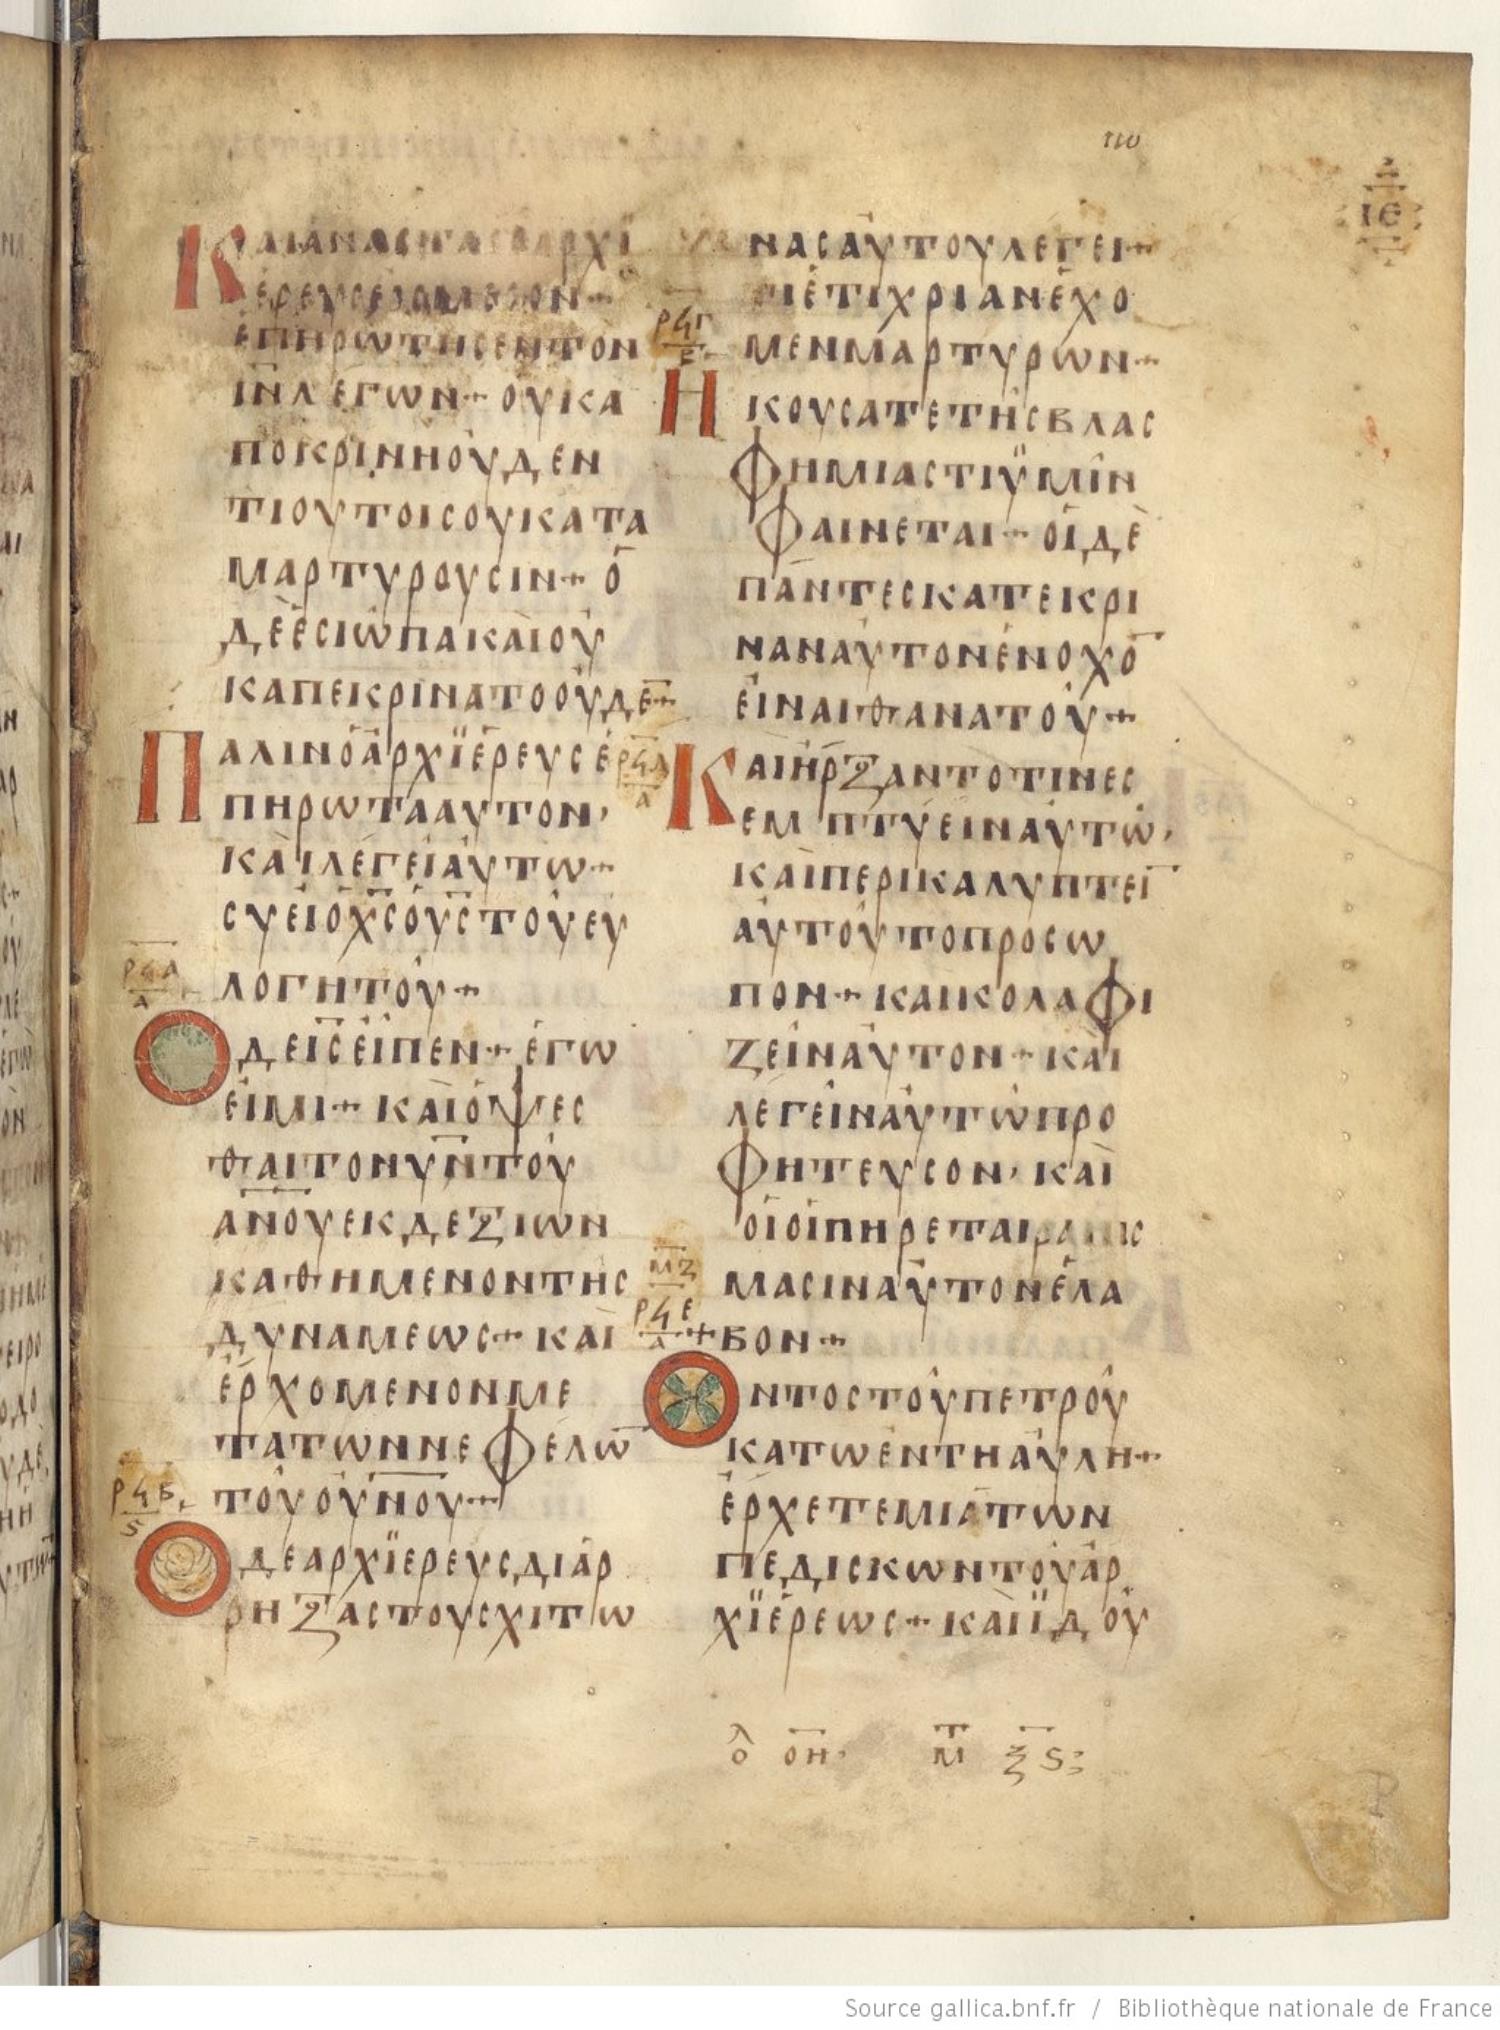 110
ΙΕ
ΚΑΙΑΝΑСΤΑСΟΑΡΧΪ
ΕΡΕΥСΕΙСΜΕСΟΝ+
ΕΠΗΡΩΤΗСΕΝΤΟΝ
ΙΝΛΕΓΩΝ+ΟΥΚΑ
ΠΟΚΡΙΝΗΟΥΔΕΝ
ΤΙΟΥΤΟΙСΟΥΚΑΤΑ
ΜΑΡΤΥΡΟΥСΙΝ+Ο
ΔΕΕСΙΩΠΑΚΑΙΟΥ
ΚΑΠΕΚΡΙΝΑΤΟΟΥΔΕ̅+
ΠΑΛΙΝΟΑΡΧΪΕΡΕΥСΕ
ΠΗΡΩΤΑΑΥΤΟΝ,
ΚΑΙΛΕΓΕΙΑΥΤΩ+
СΥΕΙΟΧ̅С̅ΟΥ̅С̅ΤΟΥΕΥ
ΛΟΓΗΤΟΥ+
ΡϞΑ
Α
ΟΔΕΙ̅С̅ΕΙΠΕΝ+ΕΓΩ
ΕΙΜΙ+ΚΑΙΟΨΕС
ΘΑΙΤΟΝΥ̅Ν̅ΤΟΥ
Α̅Ν̅Ο̅Υ̅ΕΚΔΕΞΙΩΝ
ΚΑΘΗΜΕΝΟΝΤΗС
ΔΥΝΑΜΕΩС+ΚΑΙ
ΕΡΧΟΜΕΝΟΝΜΕ
ΤΑΤΩΝΝΕΦΕΛΩ̅
ΤΟΥΟΥ̅Ν̅Ο̅Υ̅+
ΡϞΒ
S
ΟΔΕΑΡΧΪΕΡΕΥСΔΙΑΡ
ΡΗΞΑСΤΟΥСΧΙΤΩ
ΝΑСΑΥΤΟΥΛΕΓΕΙ+
ΤΙΕΤΙΧΡΙΑΝΕΧΟ
ΡϞΓ
ΜΕΝΜΑΡΤΥΡΩΝ+
ΗΚΟΥСΑΤΕΤΗСΒΛΑС
ΦΗΜΙΑСΤΙΫΜΙΝ
ΦΑΙΝΕΤΑΙ+ΟΙΔΕ
ΠΑΝΤΕСΚΑΤΕΚΡΙ
ΝΑΝΑΥΤΟΝΕΝΟΧΟ̅
ΕΙΝΑΙΘΑΝΑΤΟΥ+
ΡϞΔ
Α
ΚΑΙΗΡΞΑΝΤΟΤΙΝΕС
ΕΜΠΤΥΕΙΝΑΥΤΩ,
ΚΑΙΠΕΡΙΚΑΛΥΠΤΕΙ̅
ΑΥΤΟΥΤΟΠΡΟСΩ
ΠΟΝ+ΚΑΙΚΟΛΑΦΙ
ΖΕΙΝΑΥΤΟΝ+ΚΑΙ
ΛΕΓΕΙΝΑΥΤΩΠΡΟ
ΦΗΤΕΥСΟΝ,ΚΑΙ
ΟΙΟΙΠΗΡΕΤΑΙΡΑΠΙС
ΜΑСΙΝΑΥΤΟΝΕΛΑ
ΜΖ
ΡϞΕ
Α
+ΒΟΝ+
ΟΝΤΟСΤΟΥΠΕΤΡΟΥ
ΚΑΤΩΕΝΤΗΑΥΛΗ+
ΕΡΧΕΤΕΜΙΑΤΩΝ
ΠΕΔΙСΚΩΝΤΟΥΑΡ
ΧΪΕΡΕΩС+ΚΑΙΪΔΟΥ